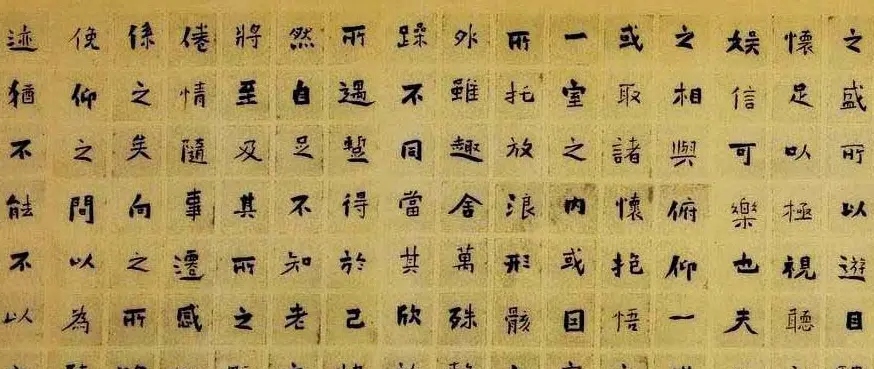 之盛所以遊目
懷足以極視聽
娛信可樂也夫
之相與俯仰一
或取諸懷抱悟
一室之內或因
所托放浪形骸
外雖趣舍萬殊
躁不同當其欣
所遇蹔得於己
然自足不知老
將至及其所之
倦情隨事遷感
係之矣向之所
俛仰之間以為
迹猶不能不以